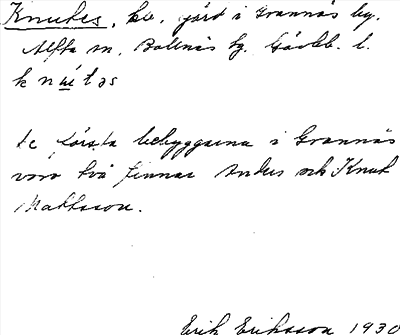 Knutes, kv. gård i Grannäs by.
Alfta sn. Bollnäs tg. Gävlb. l.
knutəs
de första bebyggarna i Grannäs
voro två finnar Anders och Knut
Mattsson.
Erik Eriksson 1930